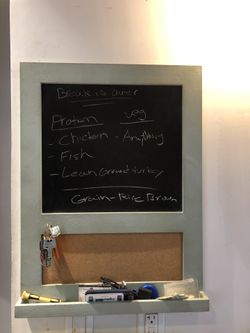 Break is over
Protien veg
- Chicken - Anything
- Fish
- Lean Ground turkey
Grain - Rice Brown